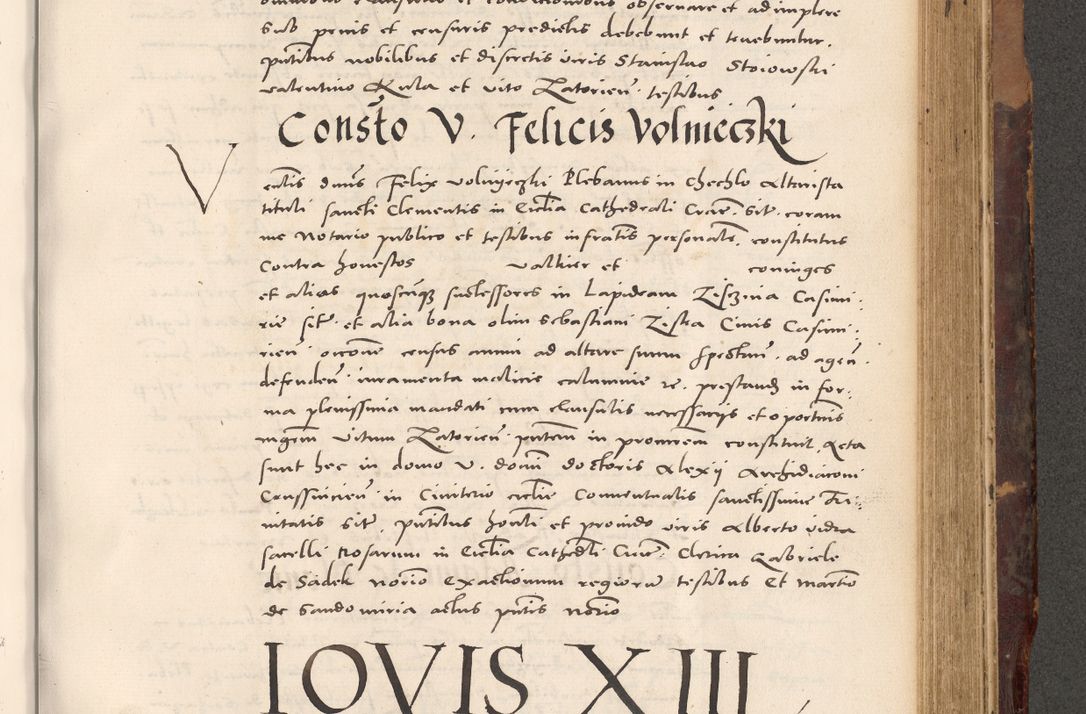 sub penis et censuris predictis debebunt et tenebuntur.
pntibus nobilibus et discretis viris Stanislao Stoiowski
valentino Kula et vito Zatorien. testibus
Consto V. Felicis Volnieczki
Venlis dnus Felix volnyeczki Plebanus in Chechlo Altarista
tituli sancti Clementis in Ecclia Cathedrali Crac. sit. coram
me Notario publico et testibus infratis personalr. constitutus
Contra honestos valhier et coniuges
et alios quoscunq successores in Lapideam Zischina Casimi-
rie sit. et alia bona olim Sebastiani Zischa Ciuis Casimi-
rien. occone census annui ad altare suum spectan. ad agen.
defenden. iuramenta malicie calumnie rc. prestand in for-
ma plenissima mandati cum clausulis necessarijs et oportunis
mgrm vitum Zatorien. pntem in procurem constituit. Acta
sunt hec in domo V. domi doctoris Alexij Archidiaconi
in Cimiterio ecclie Conuentualis sanctissime Tri-
nitatis sit. pntibus honli et prouido viris Alberto vidra
sacelli Rosarum in Ecclia Cathedli Crac. Clerico Gabriele
de Sadek norio Exactionum regiorum testibus Et martio
de Sandomiria actus pntis norio
IOVIS XIII